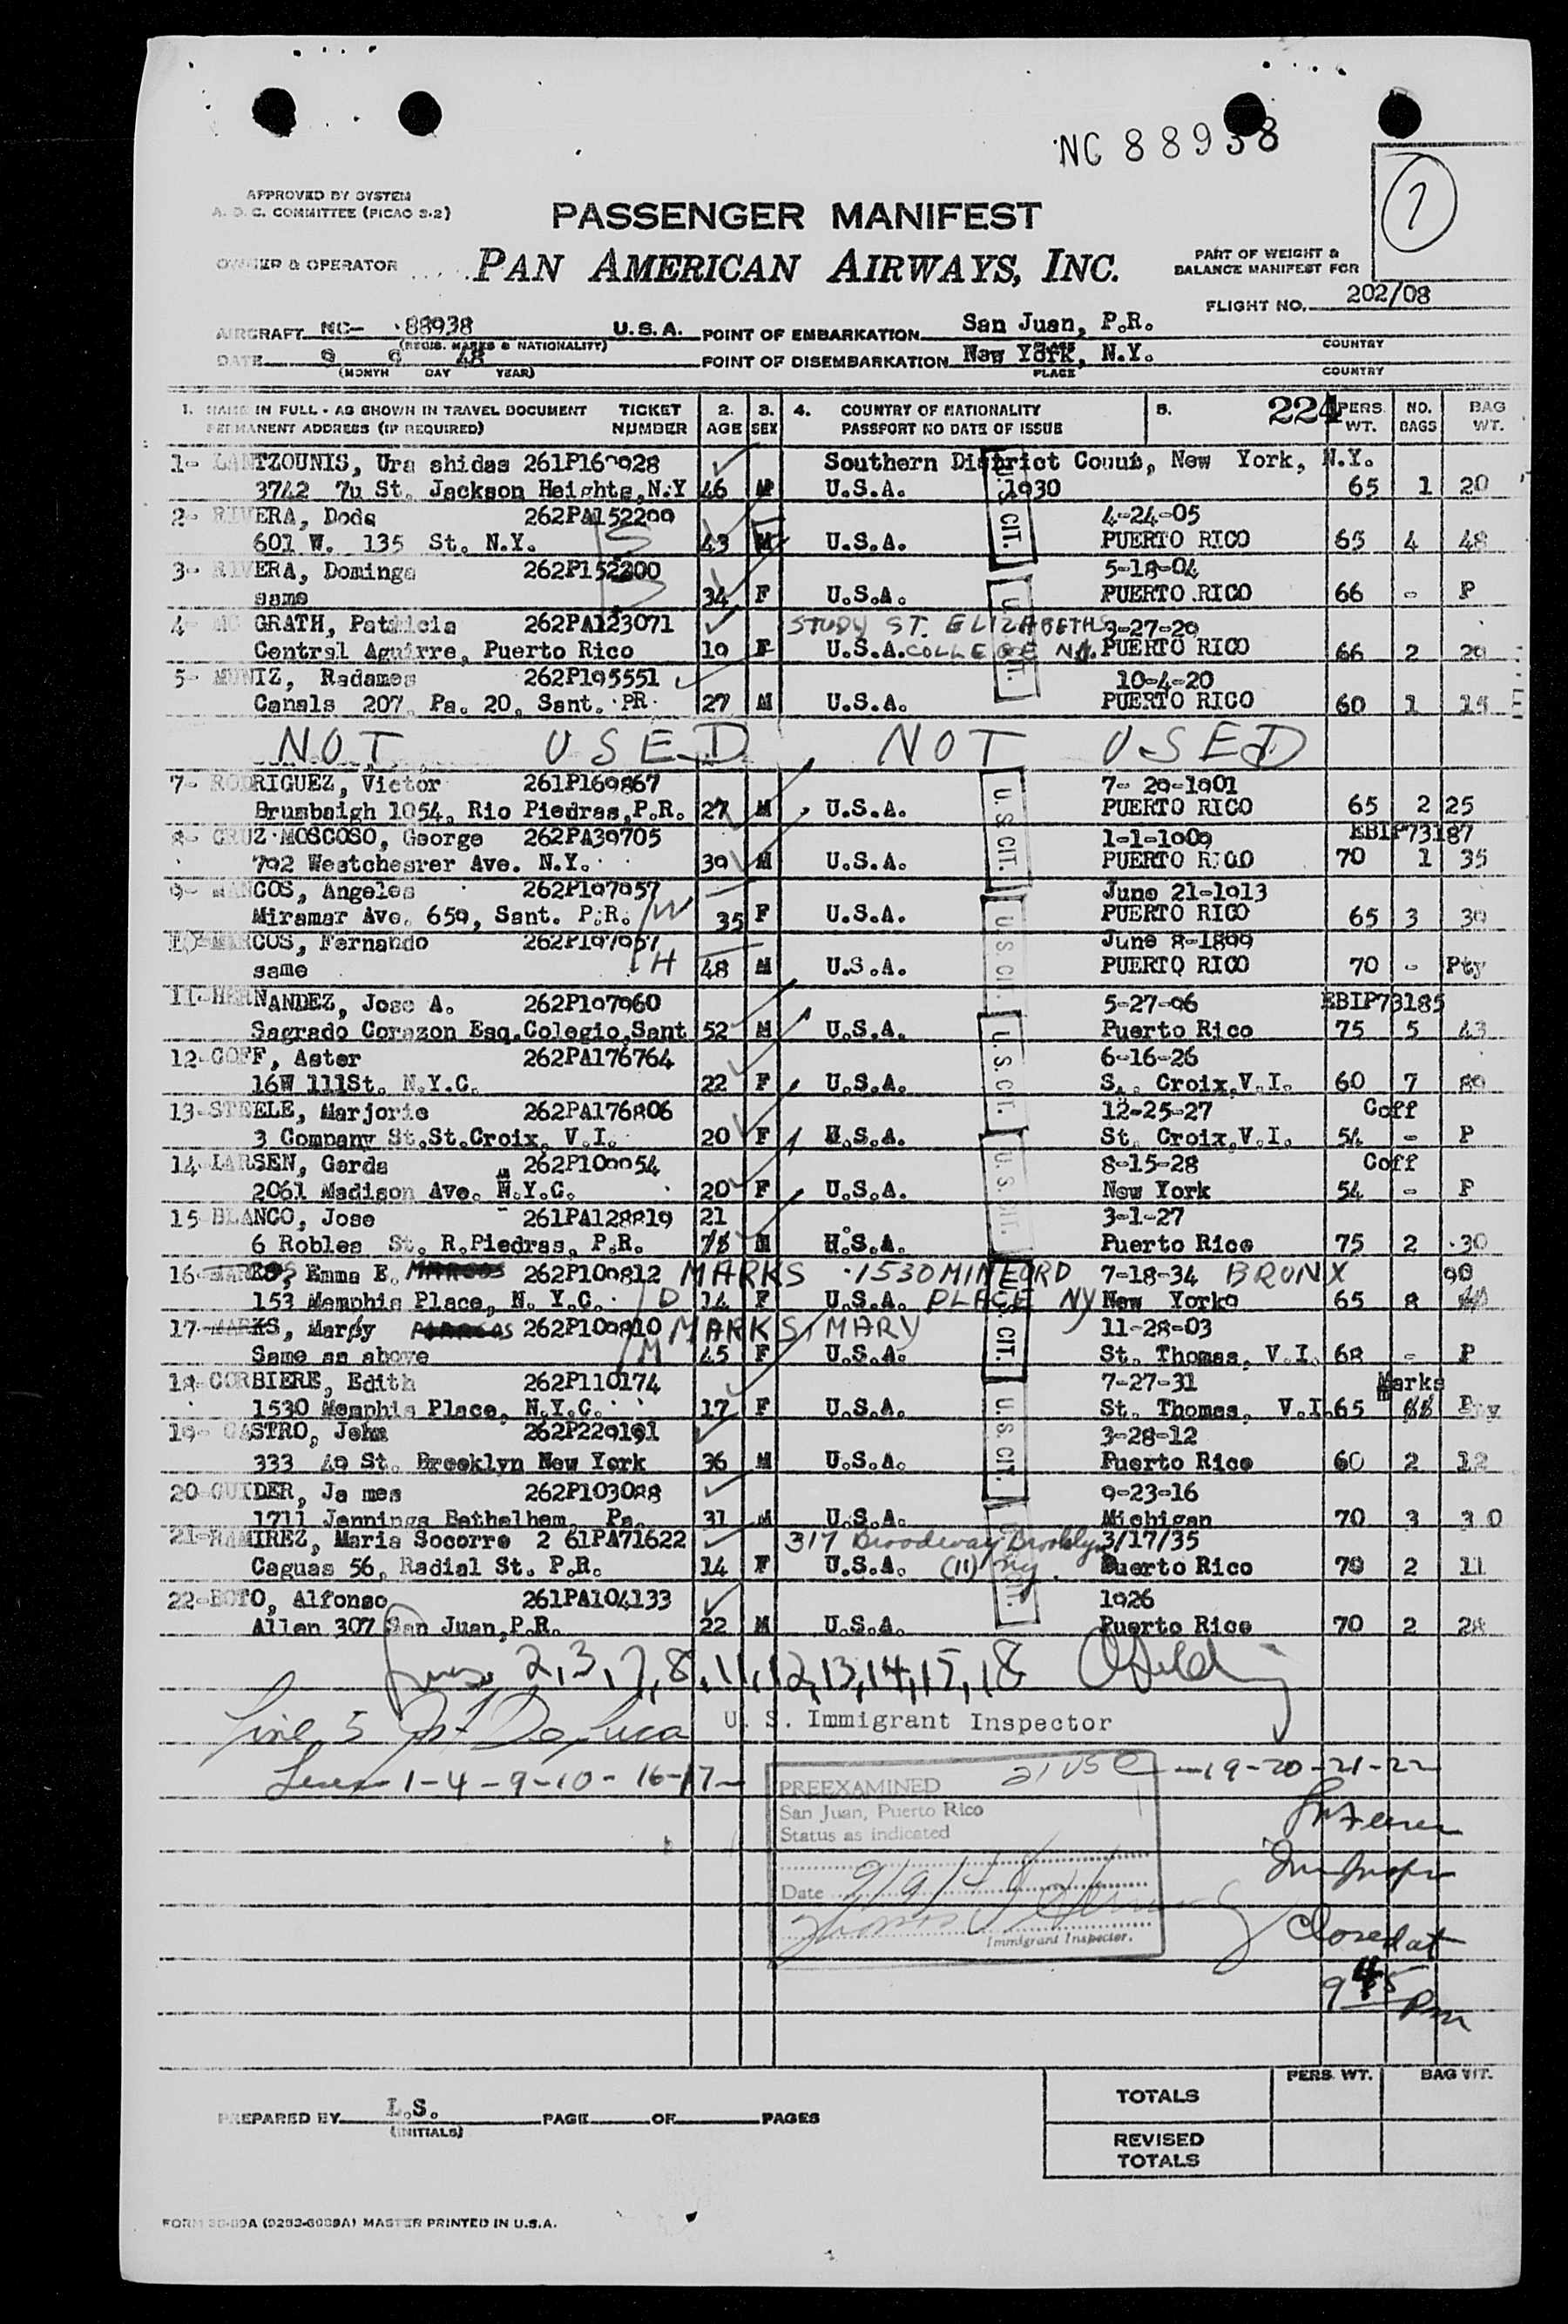 NC 88938
1
APPROVED BY SYSTEM
A. O. C. COMMITTEE (PICAO S-2)
PASSENGER MANIFEST
OWNER & OPERATOR ..... PAN AMERICAN AIRWAYS, INC.
PART OF WEIGHT &
BALANCE MANIFEST FOR
FLIGHT NO. 202/08
AIRCRAFT NC- 88938 U.S.A. POINT OF EMBARKATION San Juan, P.R.
(REGIS. MARKS & NATIONALITY) PLACE COUNTRY
DATE 9 9 48 POINT OF DISEMBARKATION New York, N.Y.
(MONTH DAY YEAR) PLACE COUNTRY
1. NAME IN FULL - AS SHOWN IN TRAVEL DOCUMENT TICKET 2. 3. 4. COUNTRY OF NATIONALITY 5. 224 PERS. NO. BAG
PERMANENT ADDRESS (IF REQUIRED) NUMBER AGE SEX PASSPORT NO DATE OF ISSUE WT. BAGS WT.
1- LANTZOUNIS, Ura shidas Southern District , New York, N.Y.
3742 St. Jackson Heights, N.Y 46 M U.S.A. 1930 65 1 20
2- RIVERA, 262PA152200 4-24-05
601 W. 135 St. N.Y. 43 M U.S.A. PUERTO RICO 65 4 48
3- RIVERA, Dominga 262P152200 5-18-04
same 34 F U.S.A. PUERTO RICO 66 - P
4- MC GRATH, Patricia 262PA123071 STUDY ST. ELIZABETHS 3-27-29
Central Aguirre, Puerto Rico 19 F U.S.A. COLLEGE NJ. PUERTO RICO 66 2 29
5- MUNIZ, Radames 262P195551 10-4-20
Canals 207, Pa. 20, Sant. PR. 27 M U.S.A. PUERTO RICO 60 1 15
NOT USED NOT USED
7- RODRIGUEZ, Victor 261P169867 7- 29-1901
Brumbaigh 1054, Rio Piedras, P.R. 27 M U.S.A. PUERTO RICO 65 2 25
8- CRUZ MOSCOSO, George 262PA39705 1-1-1909 EBIP73187
792 Westchesrer Ave. N.Y. 39 M U.S.A. PUERTO RICO 70 1 35
9- MANCOS, Angeles 262P197957 June 21-1913
Miramar Ave. 659, Sant. P.R. W 35 F U.S.A. PUERTO RICO 65 3 39
10- MARCOS, Fernando 262P197957 June 8-1899
same H 48 M U.S.A. PUERTO RICO 70 - Pty
11- HERNANDEZ, Jose A. 262P197960 5-27-96 EBIP73185
Sagrado Corazon Esq. Colegio, Sant 52 M U.S.A. Puerto Rico 75 5 43
12- GOFF, Aster 262PA176764 6-16-26
16W 111St. N.Y.C. 22 F U.S.A. S.. Croix, V.I. 60 7 89
13- STEELE, Marjorie 262PA176806 12-25-27 Goff
3 Company St. St. Croix, V.I. 20 F U.S.A. St. Croix, V.I. 54 - P
14 LARSEN, Gerda 262P199954 8-15-28 Goff
2061 Madison Ave. N.Y.C. 20 F U.S.A. New York 54 - P
15 BLANCO, Jose 261PA128819 21 3-1-27
6 Robles St. R.Piedras, P.R. M U.S.A. Puerto Rico 75 2 30
16 Emma E. 262P199812 MARKS 1530 MINFORD 7-18-34 BRONX 90
153 Memphis Place, N. Y.C. D 14 F U.S.A. PLACE NY New Yorko 65 8
17 MARKS, Mary 262P199810 MARKS, MARY 11-28-03
Same as above M 45 F U.S.A. St. Thomas, V.I. 68 - P
18- CORBIERE, Edith 262P110174 7-27-31 Marks
1530 Memphis Place, N.Y.C. 17 F U.S.A. St. Thomas, V.I. 65 Pty
19- CASTRO, John 262P229191 3-28-12
333 49 St. Brooklyn New York 36 M U.S.A. Puerto Rico 60 2 12
20- GUIDER, Ja mes 262P103088 9-23-16
1711 Jennings Bethelhem, Pa. 31 M U.S.A. Michigan 70 3 3 0
21- RAMIREZ, Maria Socorro 2 61PA71622 317 Broadway Brooklyn 3/17/35
Caguas 56, Radial St. P.R. 14 F U.S.A. (11) ny. Puerto Rico 70 2 11
22- Alfonso 261PA104133 1926
Allen 307 San Juan, P.R. 22 M U.S.A. Puerto Rico 70 2 28
U.S. CIT.
2, 3, 7, 8, 11, 12, 13, 14, 15, 18
Line 5 De Luca U. S. Immigrant Inspector
Lines 1-4-9-10-16-17- 21 USC -19-20-21-22
PREEXAMINED
San Juan, Puerto Rico
Status as indicated
Date 9/9/48
Immigrant Inspector.
Closed at
9 45 Pm
PERS. WT. BAG WT.
TOTALS
PREPARED BY L.S. PAGE OF PAGES
(INITIALS)
REVISED
TOTALS
MASTER PRINTED IN U.S.A.